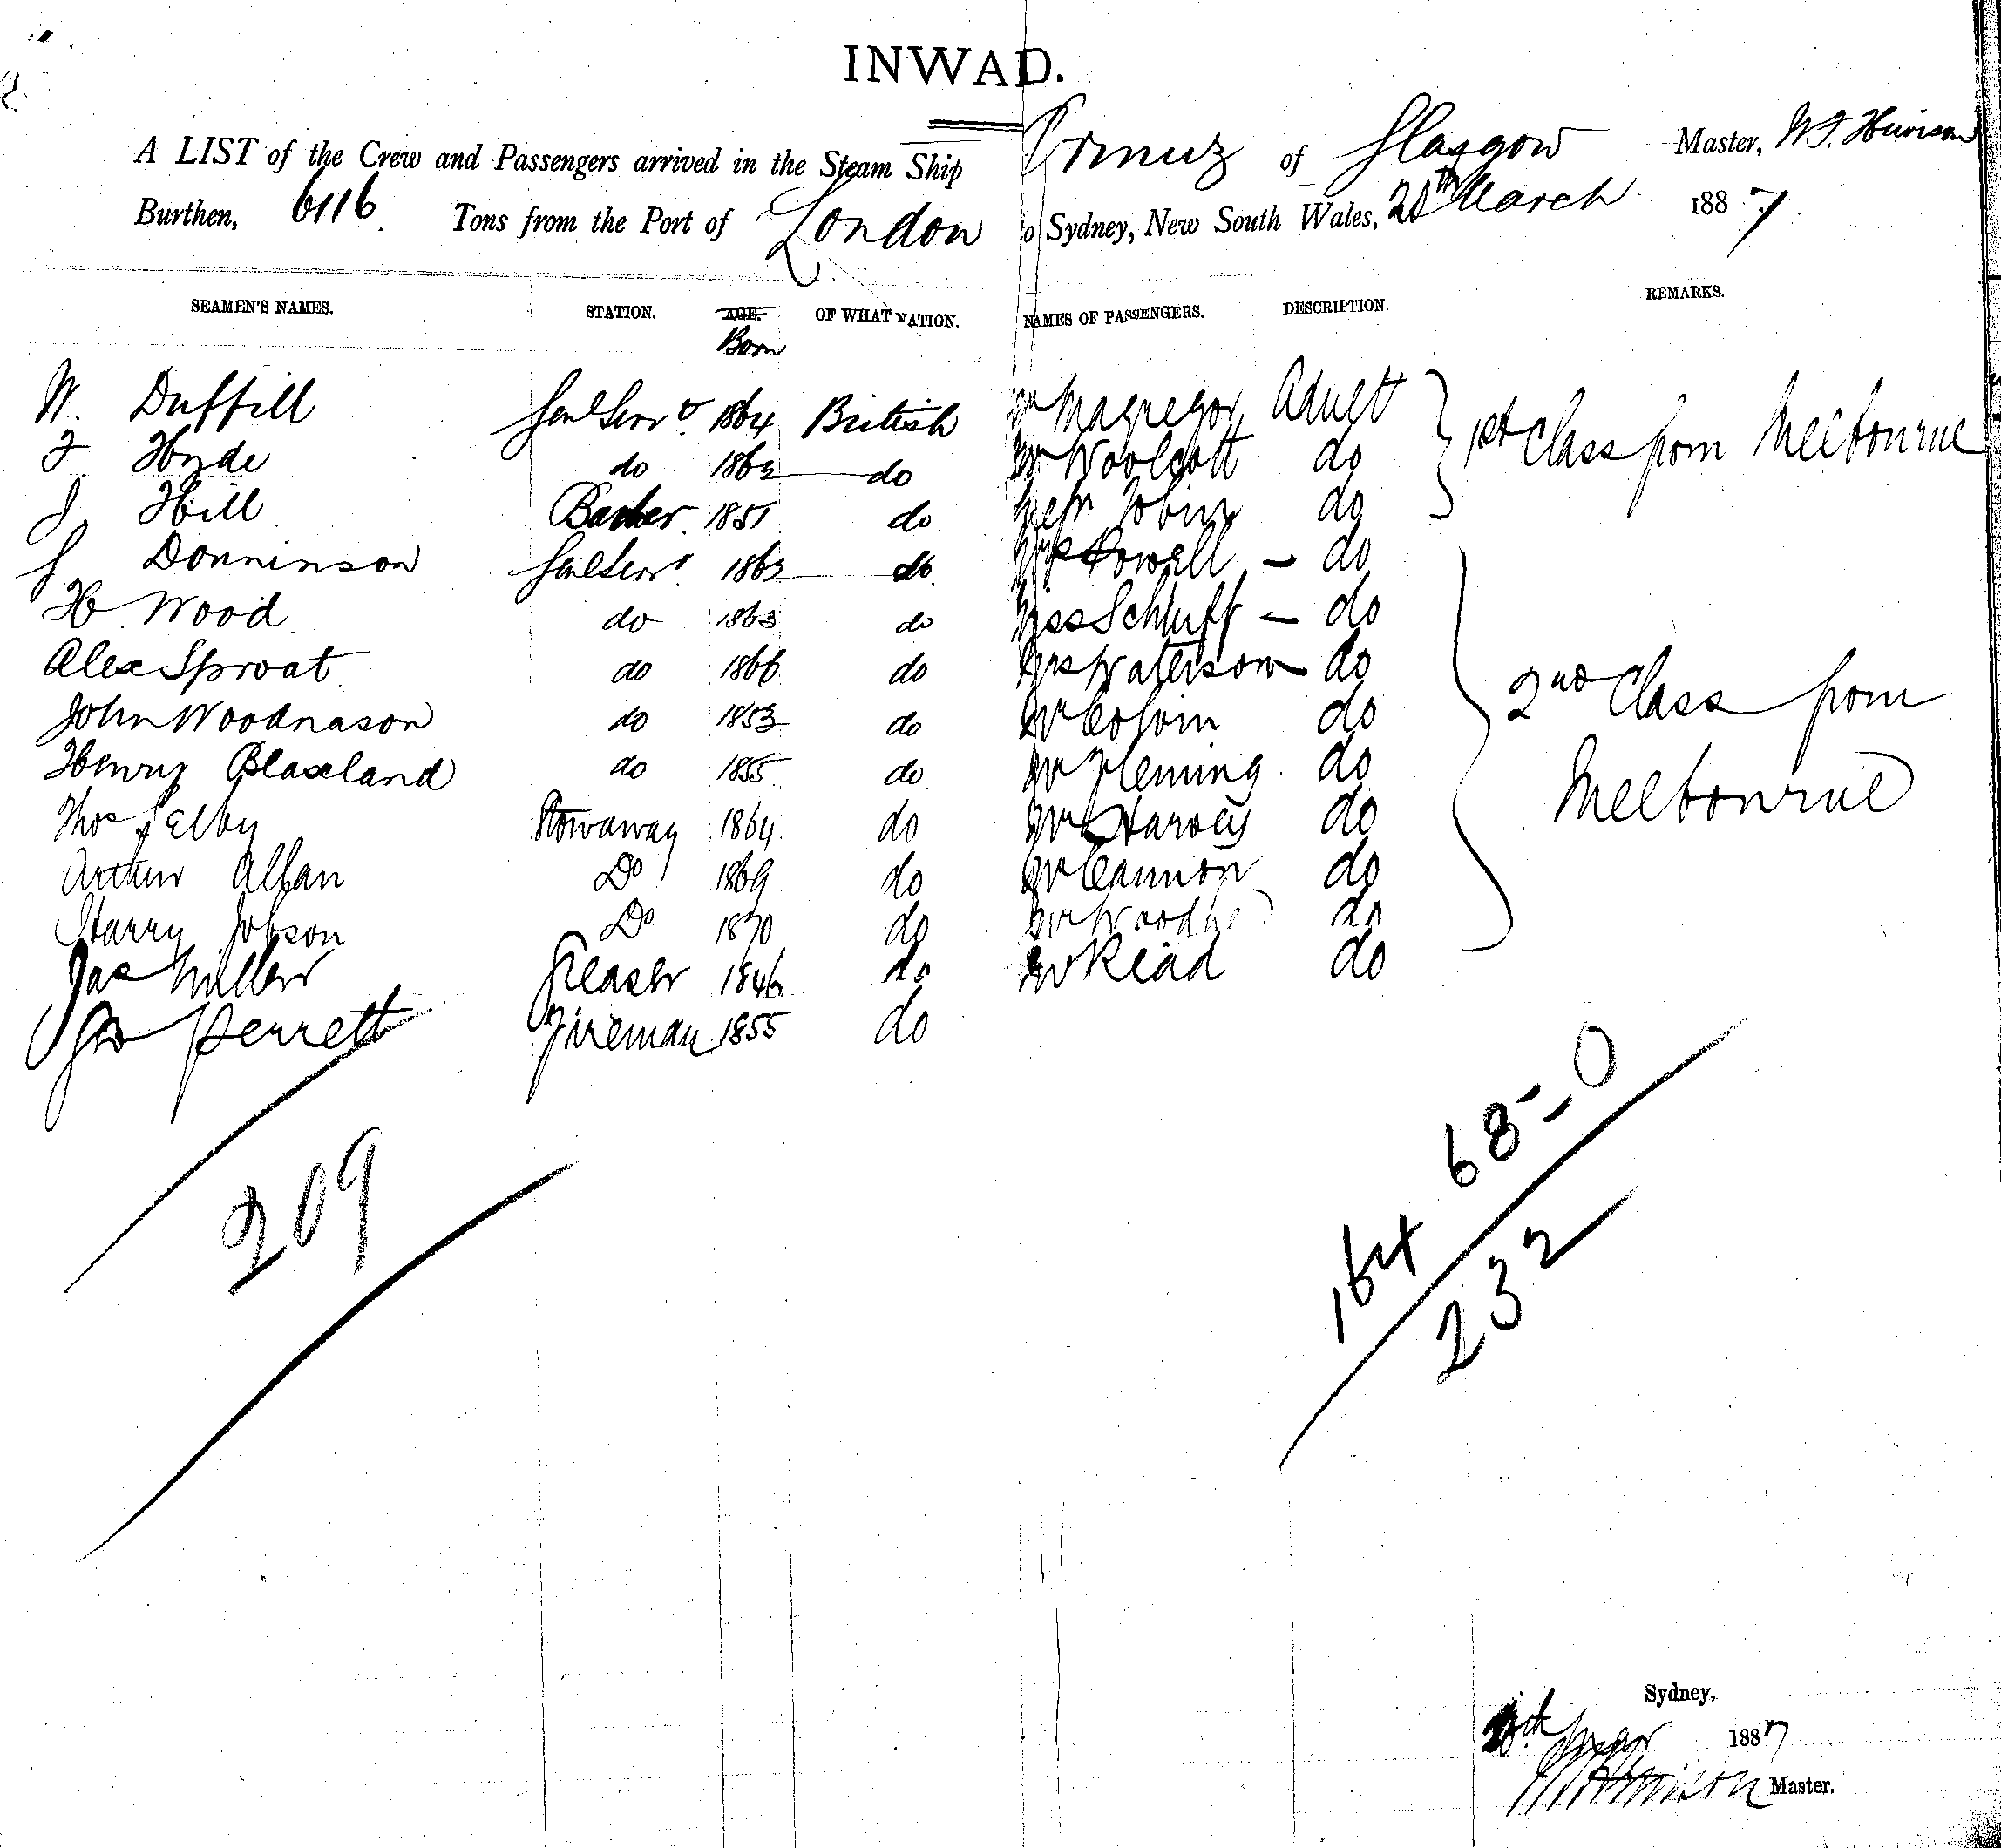 INWAD.
A LIST of the Crew and Passengers arrived in the Steam Ship Ormuz of Glasgow Master,
Burthen, 6116 Tons from the Port of London to Sydney, New South Wales, March 1887
SEAMEN'S NAMES. STATION. AGE. OF WHAT NATION. NAMES OF PASSENGERS. DESCRIPTION. REMARKS.
Born
W. Duffill Genl Servt 1864 British Mr Magregor Adult 1st Class from Melbourne
F. Hyde do 1862 do Mr Woolcott do
J Hill Barber 1851 do Tobin do
J Donninson Genl Servt 1862 do Powell - do
H Wood do 1863 do Miss Schluft - do
Alex Sproat do 1866 do Mrs Waterson do 2nd Class from
John Woodnason do 1853 do Mr Colvin do
Henry Blaxland do 1855 do Mr Fleming do Melbourne
Thos Selby Stowaway 1864 do Mr Harvey do
Arthur Allan Do 1869 do Mr Cannon do
Harry Jobson Do 1870 do Mr do
Jas Miller Greaser 1846 do Mr Read do
Geo Perrett Fireman 1855 do
209
68-0
164
232
Sydney,
1887
Master.